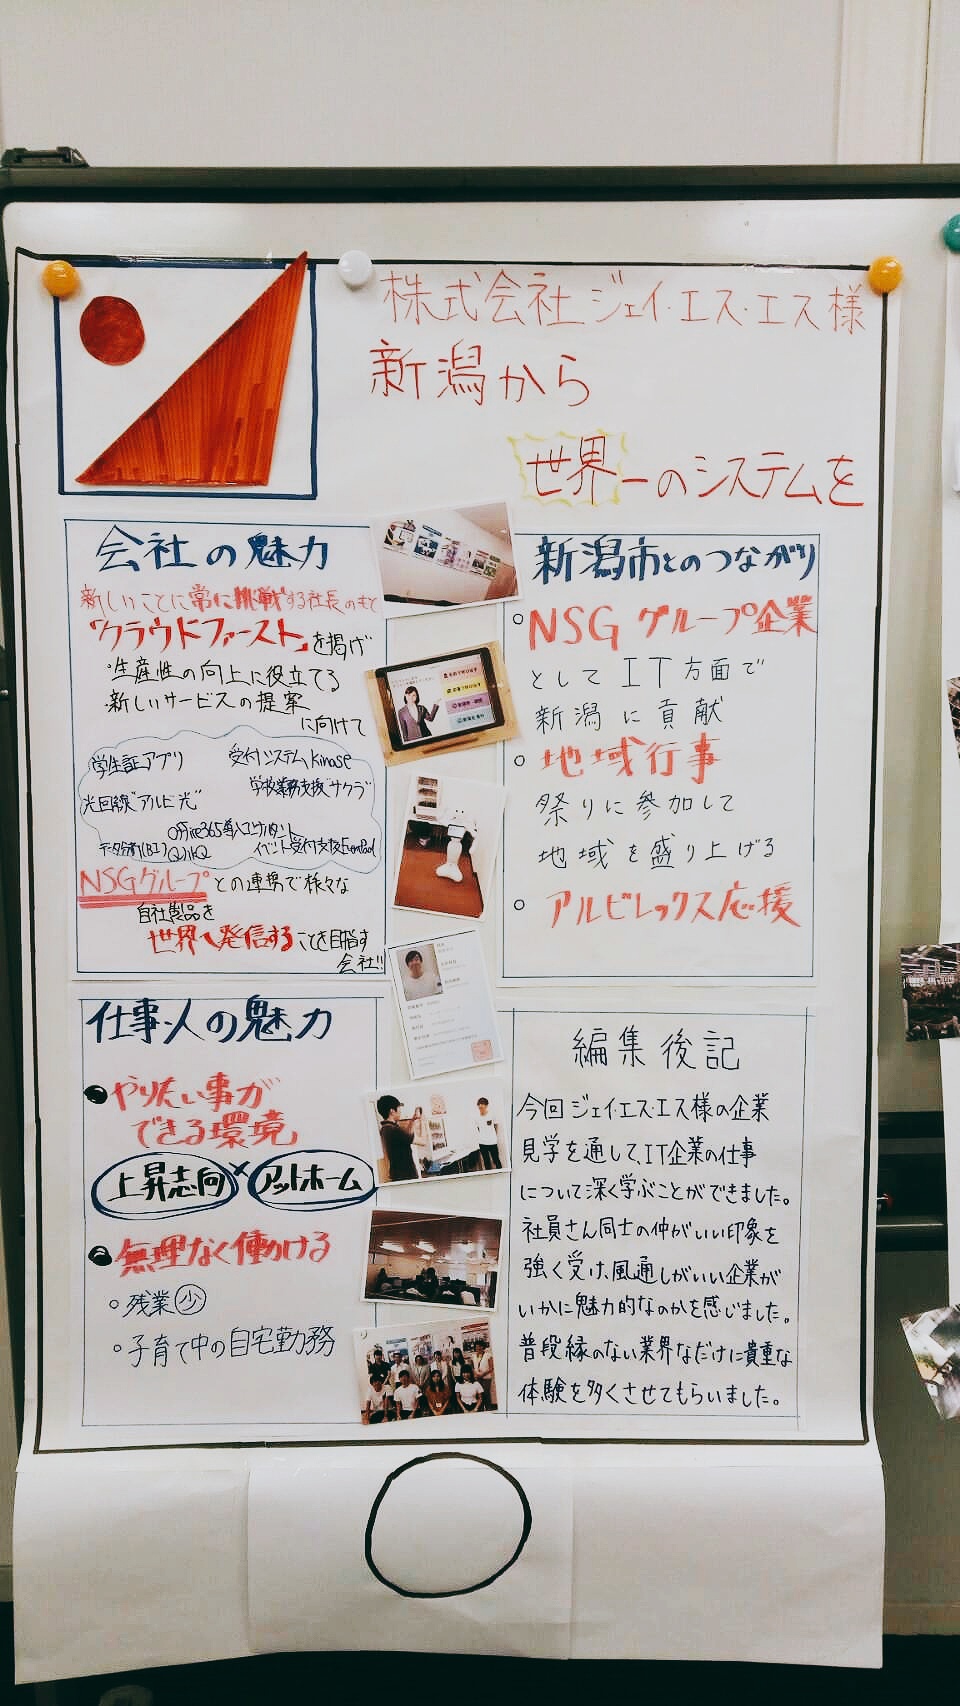 株式会社ジェイ・エス・エス様
新潟から
世界一のシステムを
会社の魅力
新しいことに常に挑戦する社長のもと
「クラウドファースト」を掲げ
・生産性の向上に役立てる
・新しいサービスの提案
に向けて
学生証アプリ
受付システムKinase
光回線"アルビ光"
学校業務支援"サクラ"
Office365導入コンサルタント
データ分析(BI)
イベント受付支援
NSGグループとの連携で様々な
自社製品を
世界へ発信することを目指す
会社!!
新潟市とのつながり
○NSGグループ企業
としてIT方面で
新潟に貢献
○地域行事
祭りに参加して
地域を盛り上げる
○アルビレックス応援
仕事人の魅力
●やりたい事が
できる環境
上昇志向×アットホーム
●無理なく働ける
○残業少
○子育て中の自宅勤務
編集後記
今回ジェイ・エス・エス様の企業
見学を通して、IT企業の仕事
について深く学ぶことができました。
社員さん同士の仲がいい印象を
強く受け、風通しがいい企業が
いかに魅力的なのかを感じました。
普段縁のない業界なだけに貴重な
体験を多くさせてもらいました。